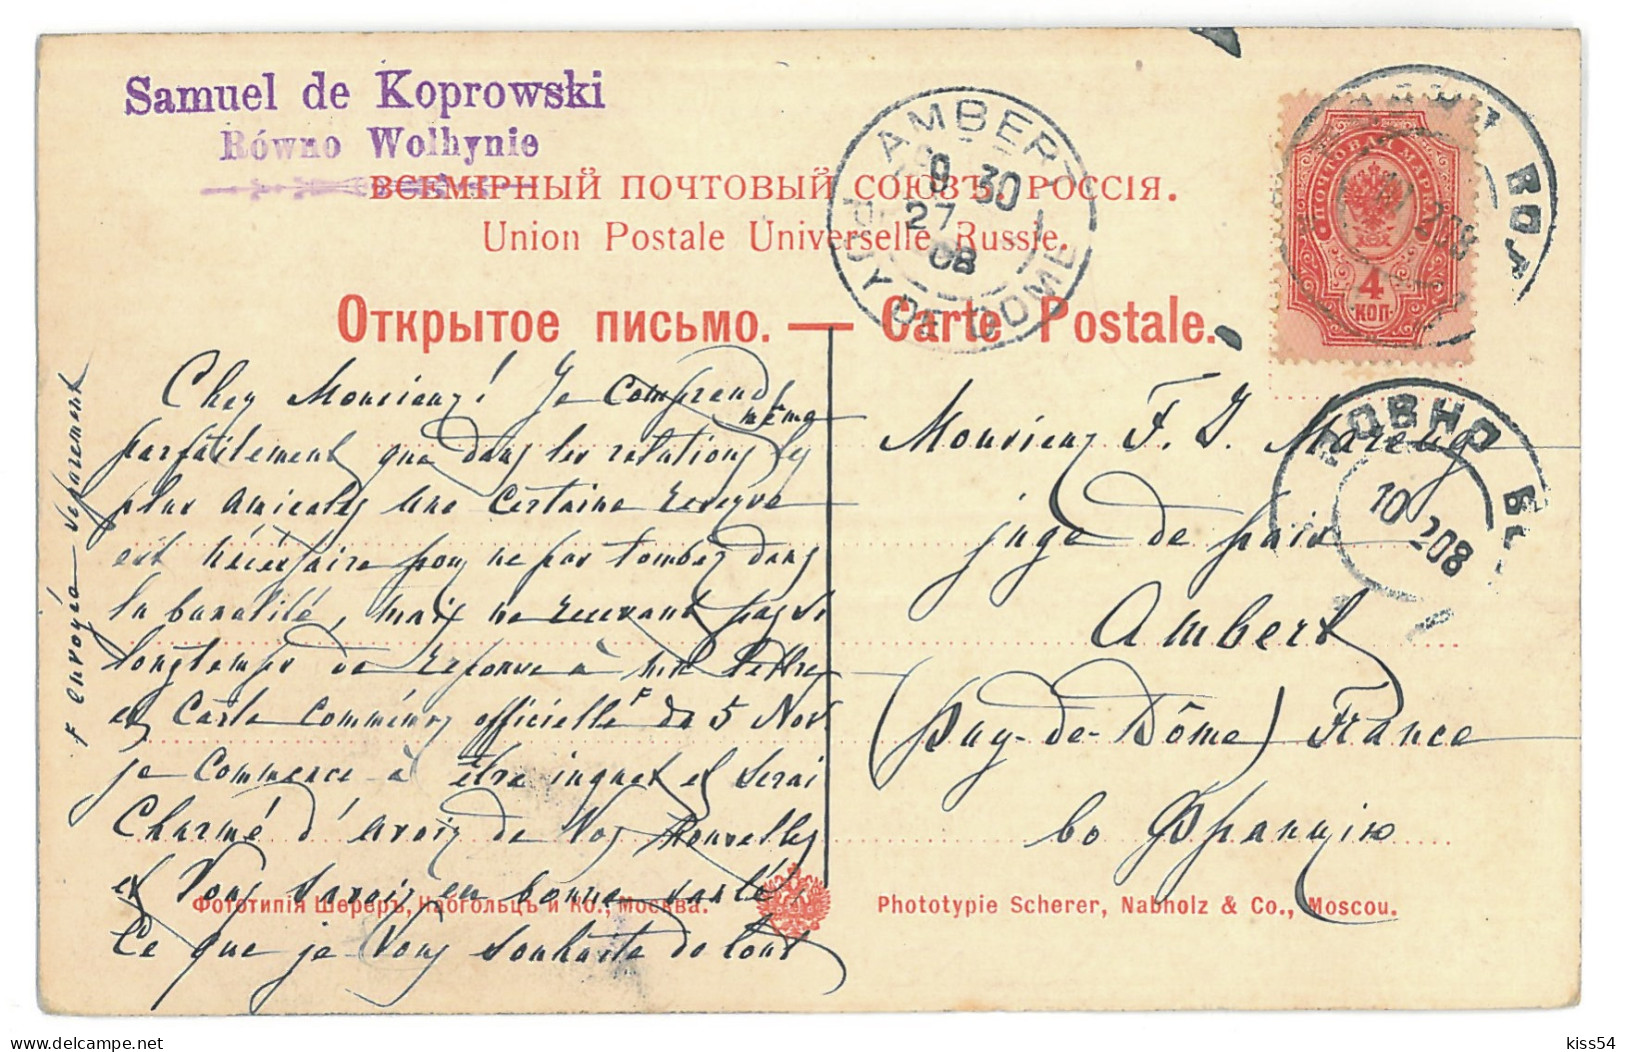 Samuel de Koprowski
Równo Wolhynie
ВСЕМІРНЫЙ ПОЧТОВЫЙ СОЮЗЪ. РОССІЯ.
Union Postale Universelle Russie.
Открытое письмо. — Carte Postale.
AMBERT
9 30
27
08
PUY DE DOME
ПОЧТОВАЯ МАРКА
4
КОП
РОВНО
10 208
Cher Monsieur! Je Comprend
parfaitement que dans les relations les même
plus amicales une Certaine
est nécessaire pour ne pas tomber dans
la banalité, mais ne recevant pas si
longtemps de réponse à ma lettre
et Carte officielle F de 5 Nov.
je Commence à être inquet et serai
Charmé d'avoir de Vos Nouvelles
et Vous savoir en bonne santé,
Ce que je Vous souhaite de tout
F envoyée séparement
Monsieur F. J.
juge de paix
Ambert
(Puy-de-Dôme) France
во Францію
Фототипія Шереръ, Набгольцъ и Ко., Москва.
Phototypie Scherer, Nabholz & Co., Moscou.
kiss54